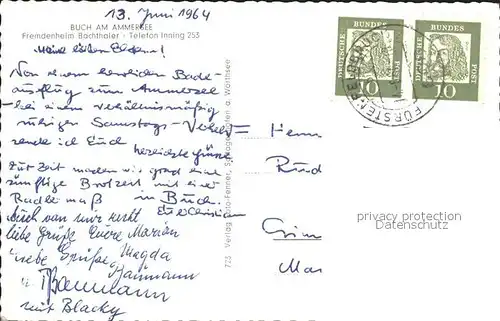 13. Juni 1964
BUCH AM AMMERSEE
Fremdenheim Bachthaler - Telefon Inning 253
Meine lieben
Von einem herrlichen Bade-
ausflug zum Ammersee
- bei einem verhältnismäßig
ruhigen Samstags-Verkehr -
sende ich Euch
herzlichste Grüße
Zur Zeit machen wir grad eine
zünftige Brotzeit mit einer
Radlermaß in Buch.
Euer Christian
Auch von mir recht
liebe Grüße Eure Marian
Liebe Grüße Magda
Baumann
u. Baumann
mit Blacky
723 Verlag Foto-Fenner, a. Wörthsee
Herrn
DEUTSCHE
BUNDES
POST
10
DEUTSCHE
BUNDES
POST
10
FÜRSTENFELDBRUCK
privacy protection
Datenschutz